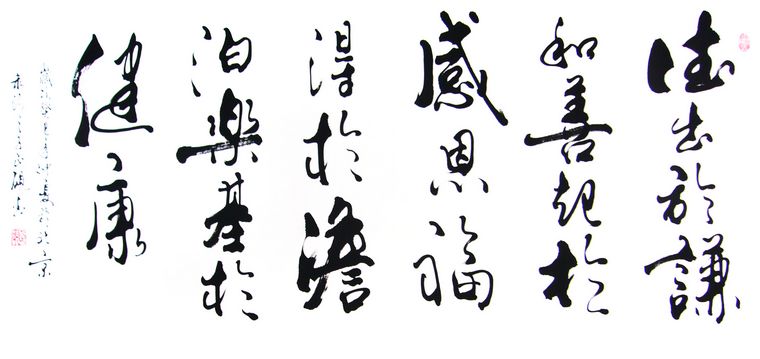 德出於謙
和善起於
感恩福
得於澹
泊樂基於
健康
北京